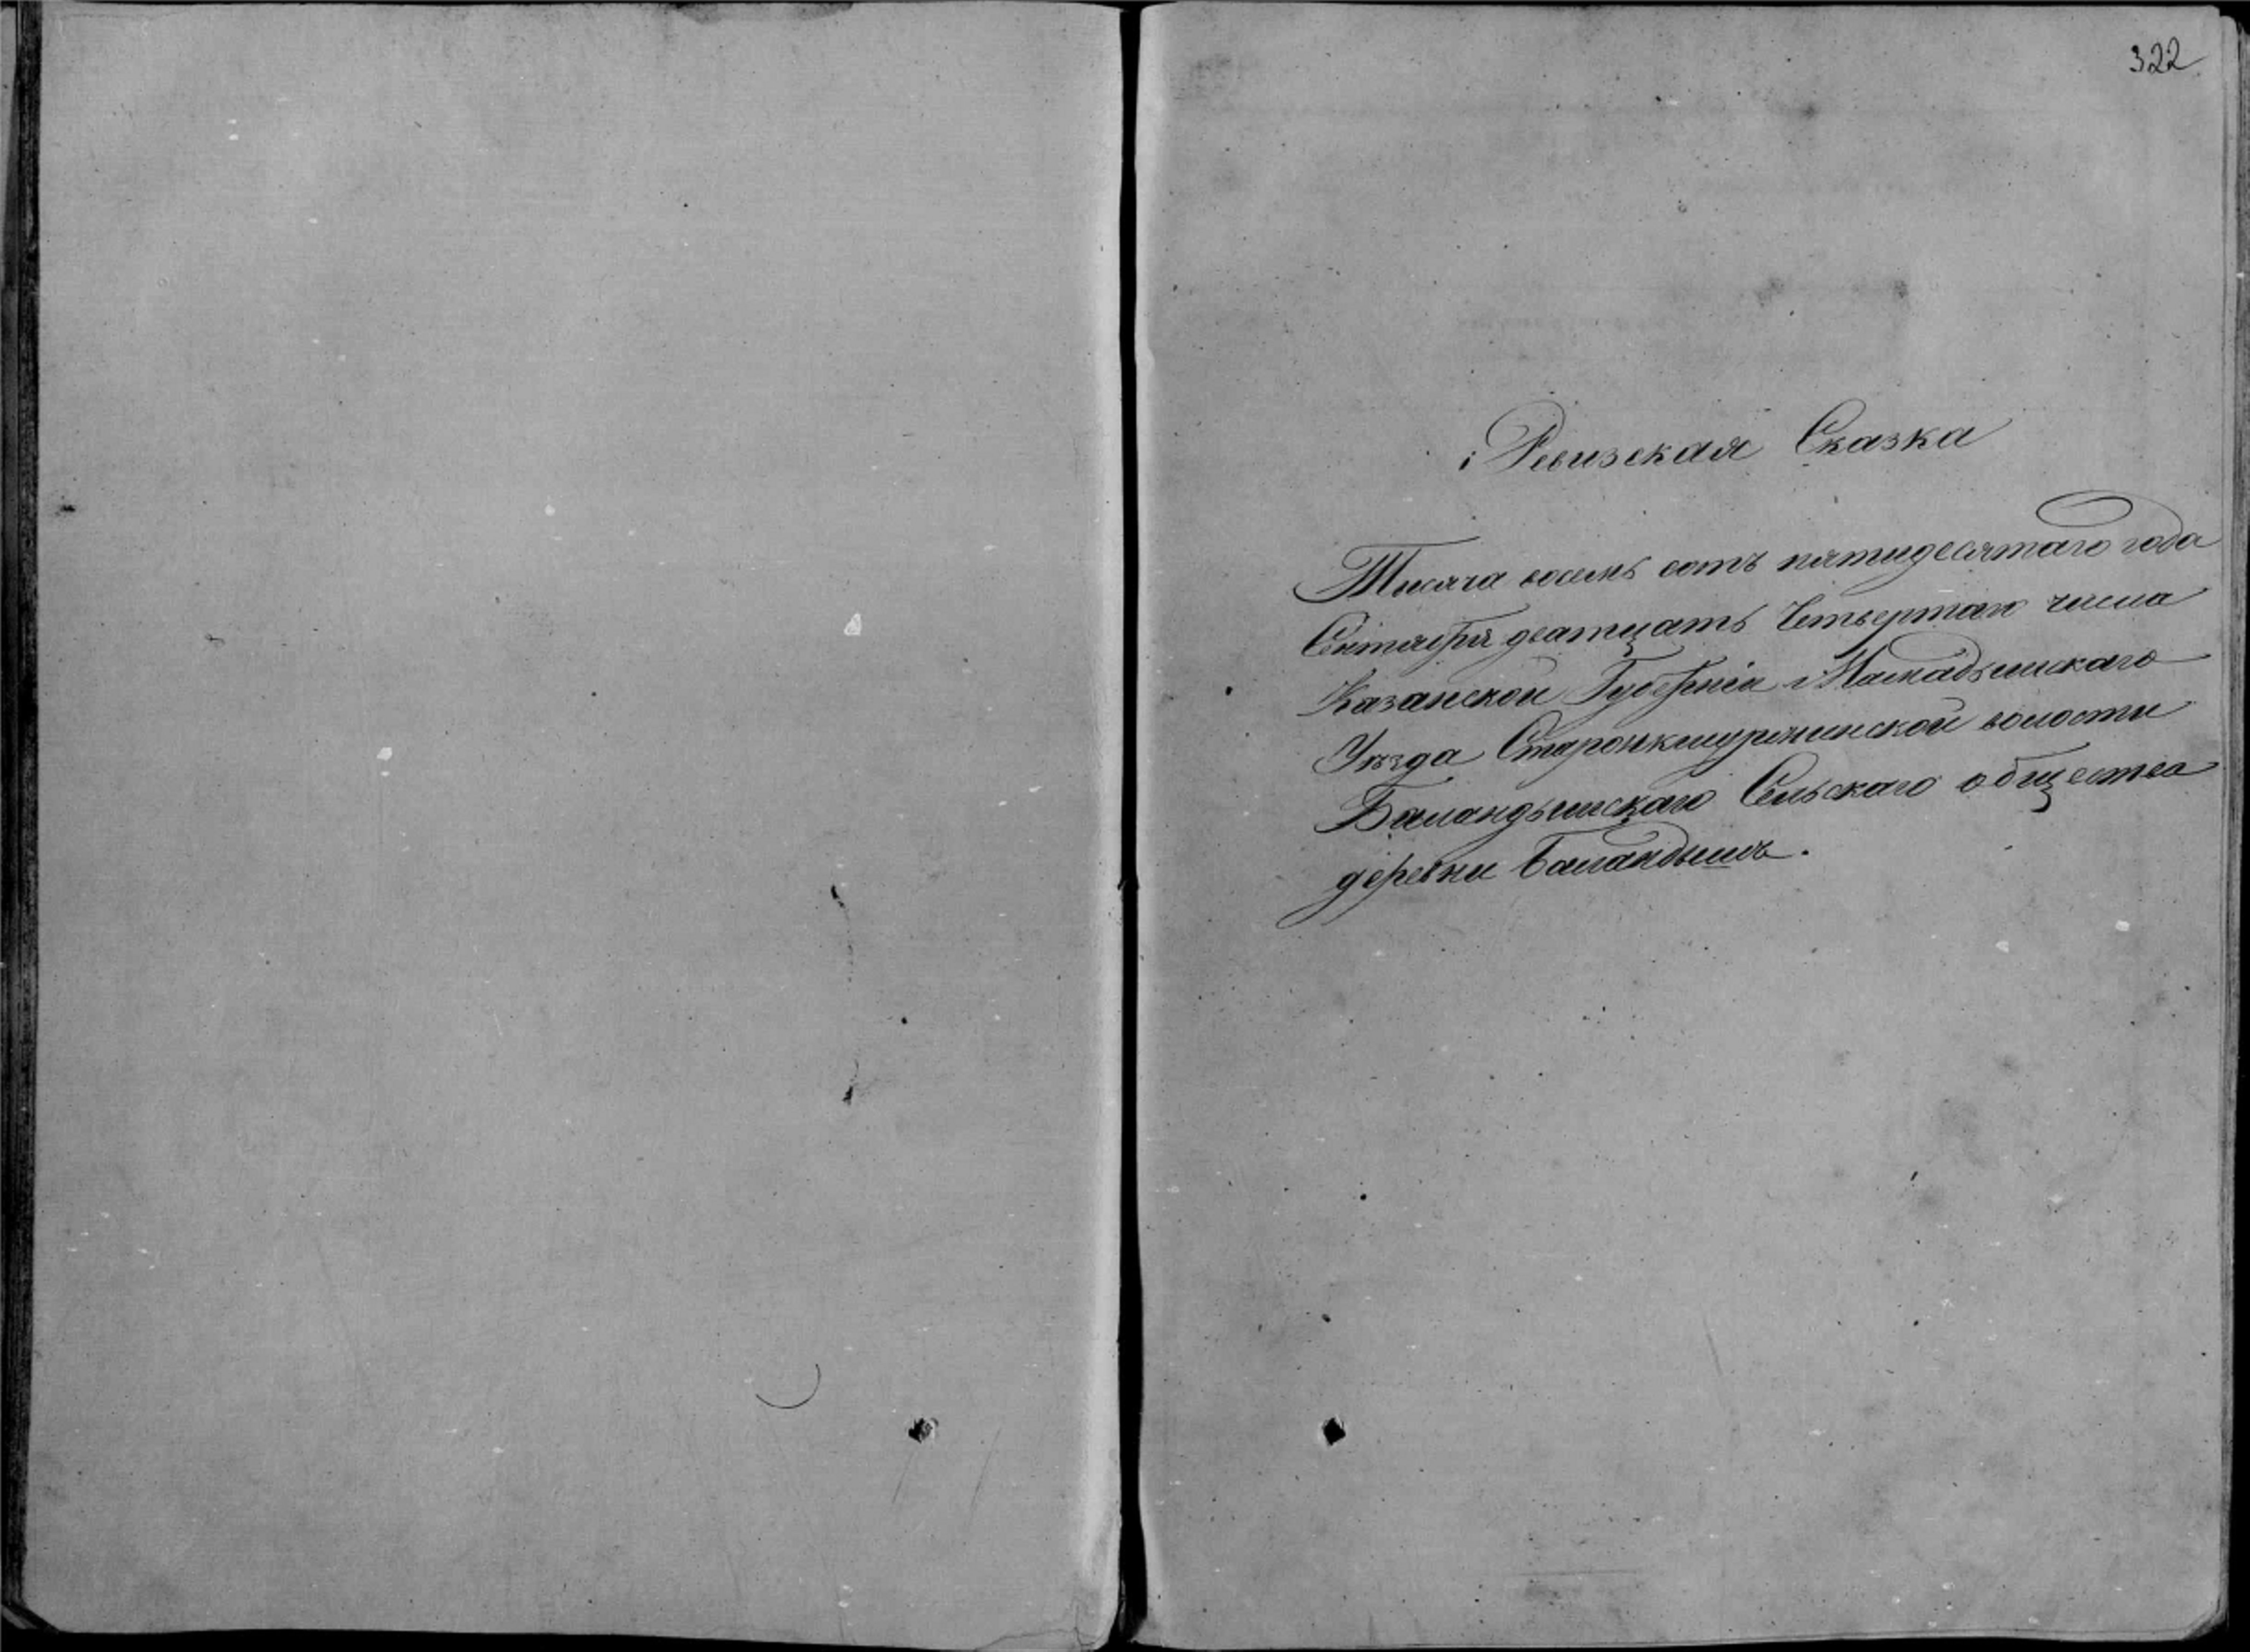 322
Ревизская Сказка
Тысяча восемь сотъ пятидесятаго года
Сентября дватцать Четвертаго числа
Казанской Губерніи Мамадышскаго
Уѣзда волости
Баландышскаго Сельскаго общества
деревни Баландышъ.